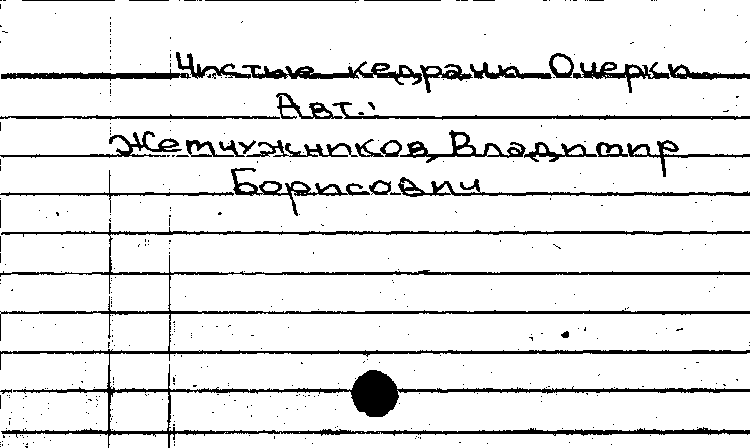 Чистые кедрачи Очерки
Авт.:
Жемчужников, Владимир
Борисович